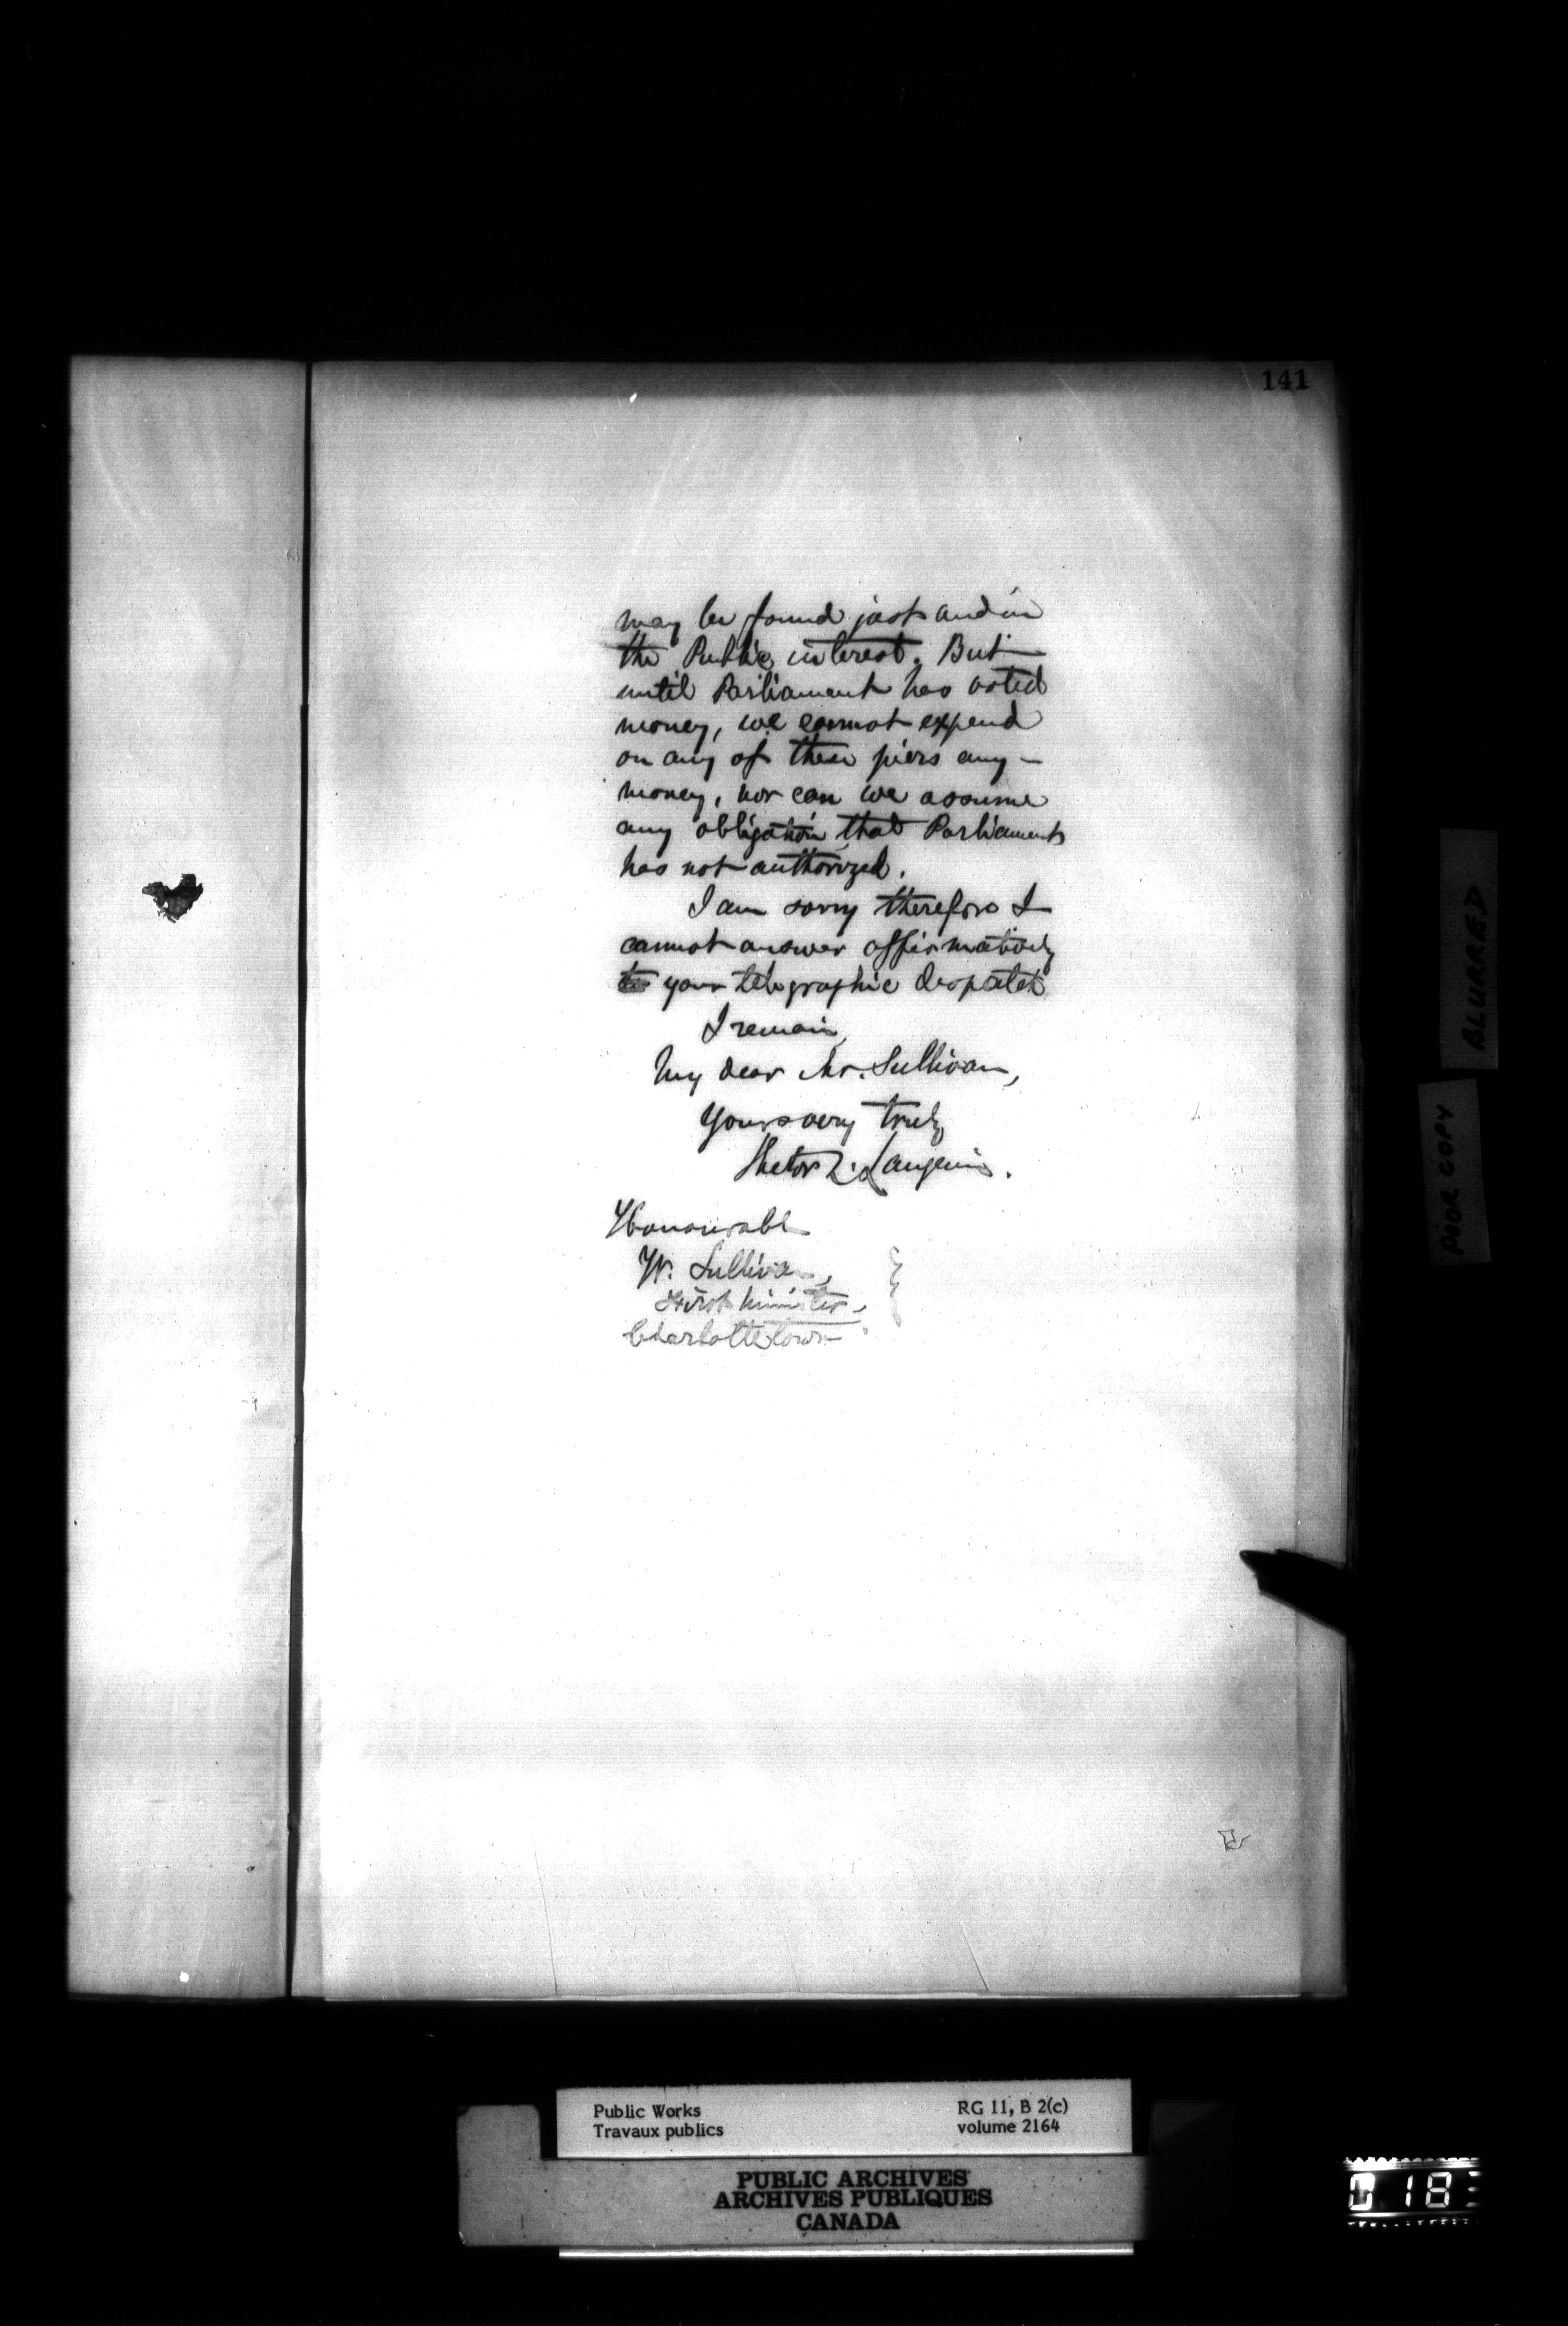 141
may be found just and in
the Public interest. But
until Parliament has voted
money, we cannot expend
on any of these piers any
money, nor can we assume
any obligation that Parliament
has not authorized.
I am sorry therefore I
cannot answer affirmatively
to your telegraphic despatch
I remain,
My dear Mr. Sullivan,
Yours very truly
Hector L. Langevin.
Honourable
W. Sullivan,
First Minister,
Charlottetown.
BLURRED
POOR COPY
Public Works
Travaux publics
RG 11, B 2(c)
volume 2164
PUBLIC ARCHIVES
ARCHIVES PUBLIQUES
CANADA
018